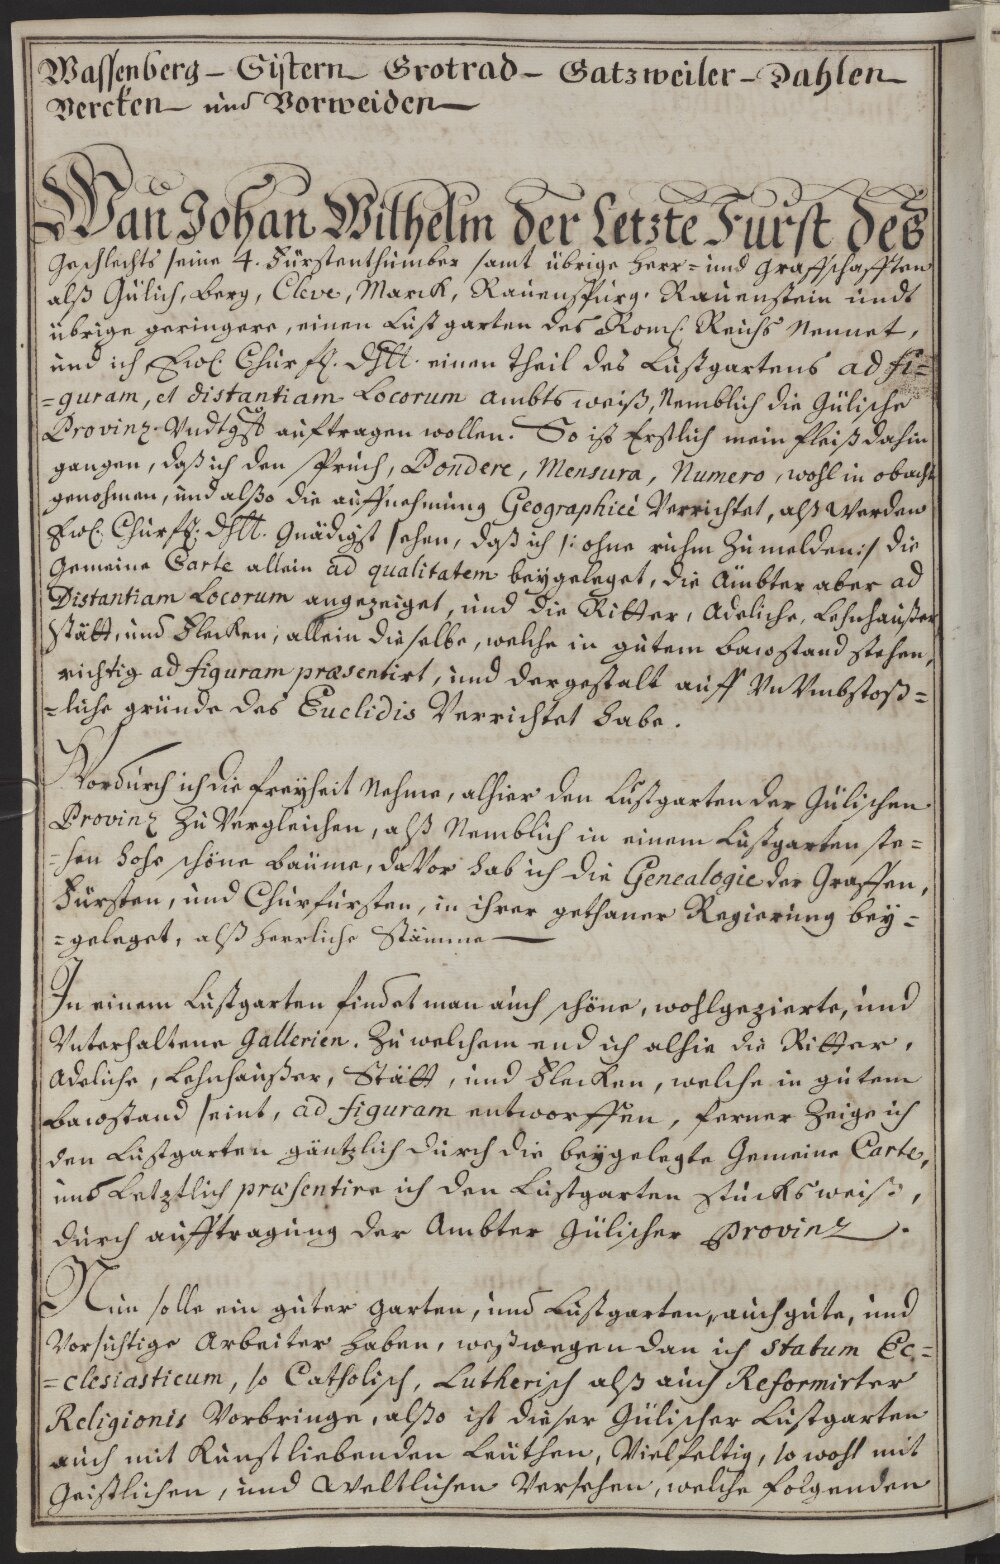 Wassenberg – Sistern – Grotrad – Gatzweiler – Dahlen
Vercken – und Vorweiden –
Wan Johan Wilhelm der Letzte Furst des
Geschlechts seine 4. Fürstenthümber samt übrige Herr= und Graffschafften
alß Gülich, Berg, Cleve, Marck, Rauenspurg, Rauenstein undt
übrige geringere, einen Lustgarten des Röm: Reichs Nennet,
und ich Ewl: Churfl. Dhlt. einen theil des Lustgartens ad fi=
=guram, et distantiam Locorum ambts weiß, Nemblich die Gülische
Provinz. Undtgst auftragen wollen. So ist Erstlich mein fleiß dahin
gangen, daß ich den spruch, Pondere, Mensura, Numero, wohl in obacht
genohmen, und alßo die auffnehmung Geographicè Verrichtet, alß Werden
Ewl: Churfl: Dhlt. Gnädigst sehen, daß ich /: ohne ruhm Zu melden :/ die
Gemeine Carte allein ad qualitatem beygeleget, die Ämbter aber ad
Distantiam Locorum angezeiget, und die Ritter, Adeliche, Lehnhaußer
Stätt, und Flecken, allein dieselbe, welche in gutem bawstand stehen,
richtig ad figuram præsentirt, und dergestalt auff UnVmbstoß=
=liche gründe des Euclidis Verrichtet habe.
Wordurch ich die freyheit Nehme, alhier den Lustgarten der Gülischen
Provinz Zu Vergleichen, alß Nemblich in einem Lustgarten ste=
=hen hohe schöne baüme, daVor hab ich die Genealogie der Graffen,
Fürsten, und Churfürsten, in ihrer gethaner Regierung bey=
=geleget, alß herrliche Stämme –
In einem Lustgarten findet man auch schöne, wohlgezierte, und
Vnterhaltene Gallerien. Zu welchem end ich alhie die Ritter,
Adeliche, Lehnhaußer, Stätt, und Flecken, welche in gutem
bawstand seint, ad figuram entworffen, ferner Zeige ich
den Lustgarten gäntzlich durch die beygelegte Gemeine Carte,
und Letztlich præsentire ich den Lustgarten stucksweiß,
durch aufftragung der Ambter Gülischer Provinz.
Nun solle ein guter garten, und Lustgarten, auch gute, und
Vorsichtige Arbeiter haben, weßwegen dan ich statum Ec=
=clesiasticum, so Catholisch, Lutherisch alß auch Reformirter
Religionis Vorbringe, alßo ist dieser Gülischer Lustgarten
auch mit Kunstliebenden Leüthen, Vielfeltig, so wohl mit
Geistlichen, und Weltlichen Versehen, welche folgenden